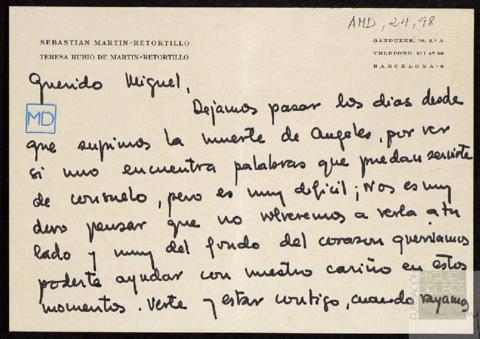 AMD, 24, 98
SEBASTIAN MARTIN-RETORTILLO
TERESA RUBIO DE MARTIN-RETORTILLO
GANDUXER, 76, 2.º A
TELEFONO 211 47 98
BARCELONA-6
Querido Miguel,
MD
Dejamos pasar los dias desde
que supimos la muerte de Angeles, por ver
si uno encuentra palabras que puedan servirte
de consuelo, pero es muy dificil; Nos es muy
duro pensar que no volveremos a verla a tu
lado y muy del fondo del corazon querriamos
poderte ayudar con nuestro cariño en estos
momentos. Verte y estar contigo, cuando vayamos
FUNDACIÓN
MIGUEL
DELIBES